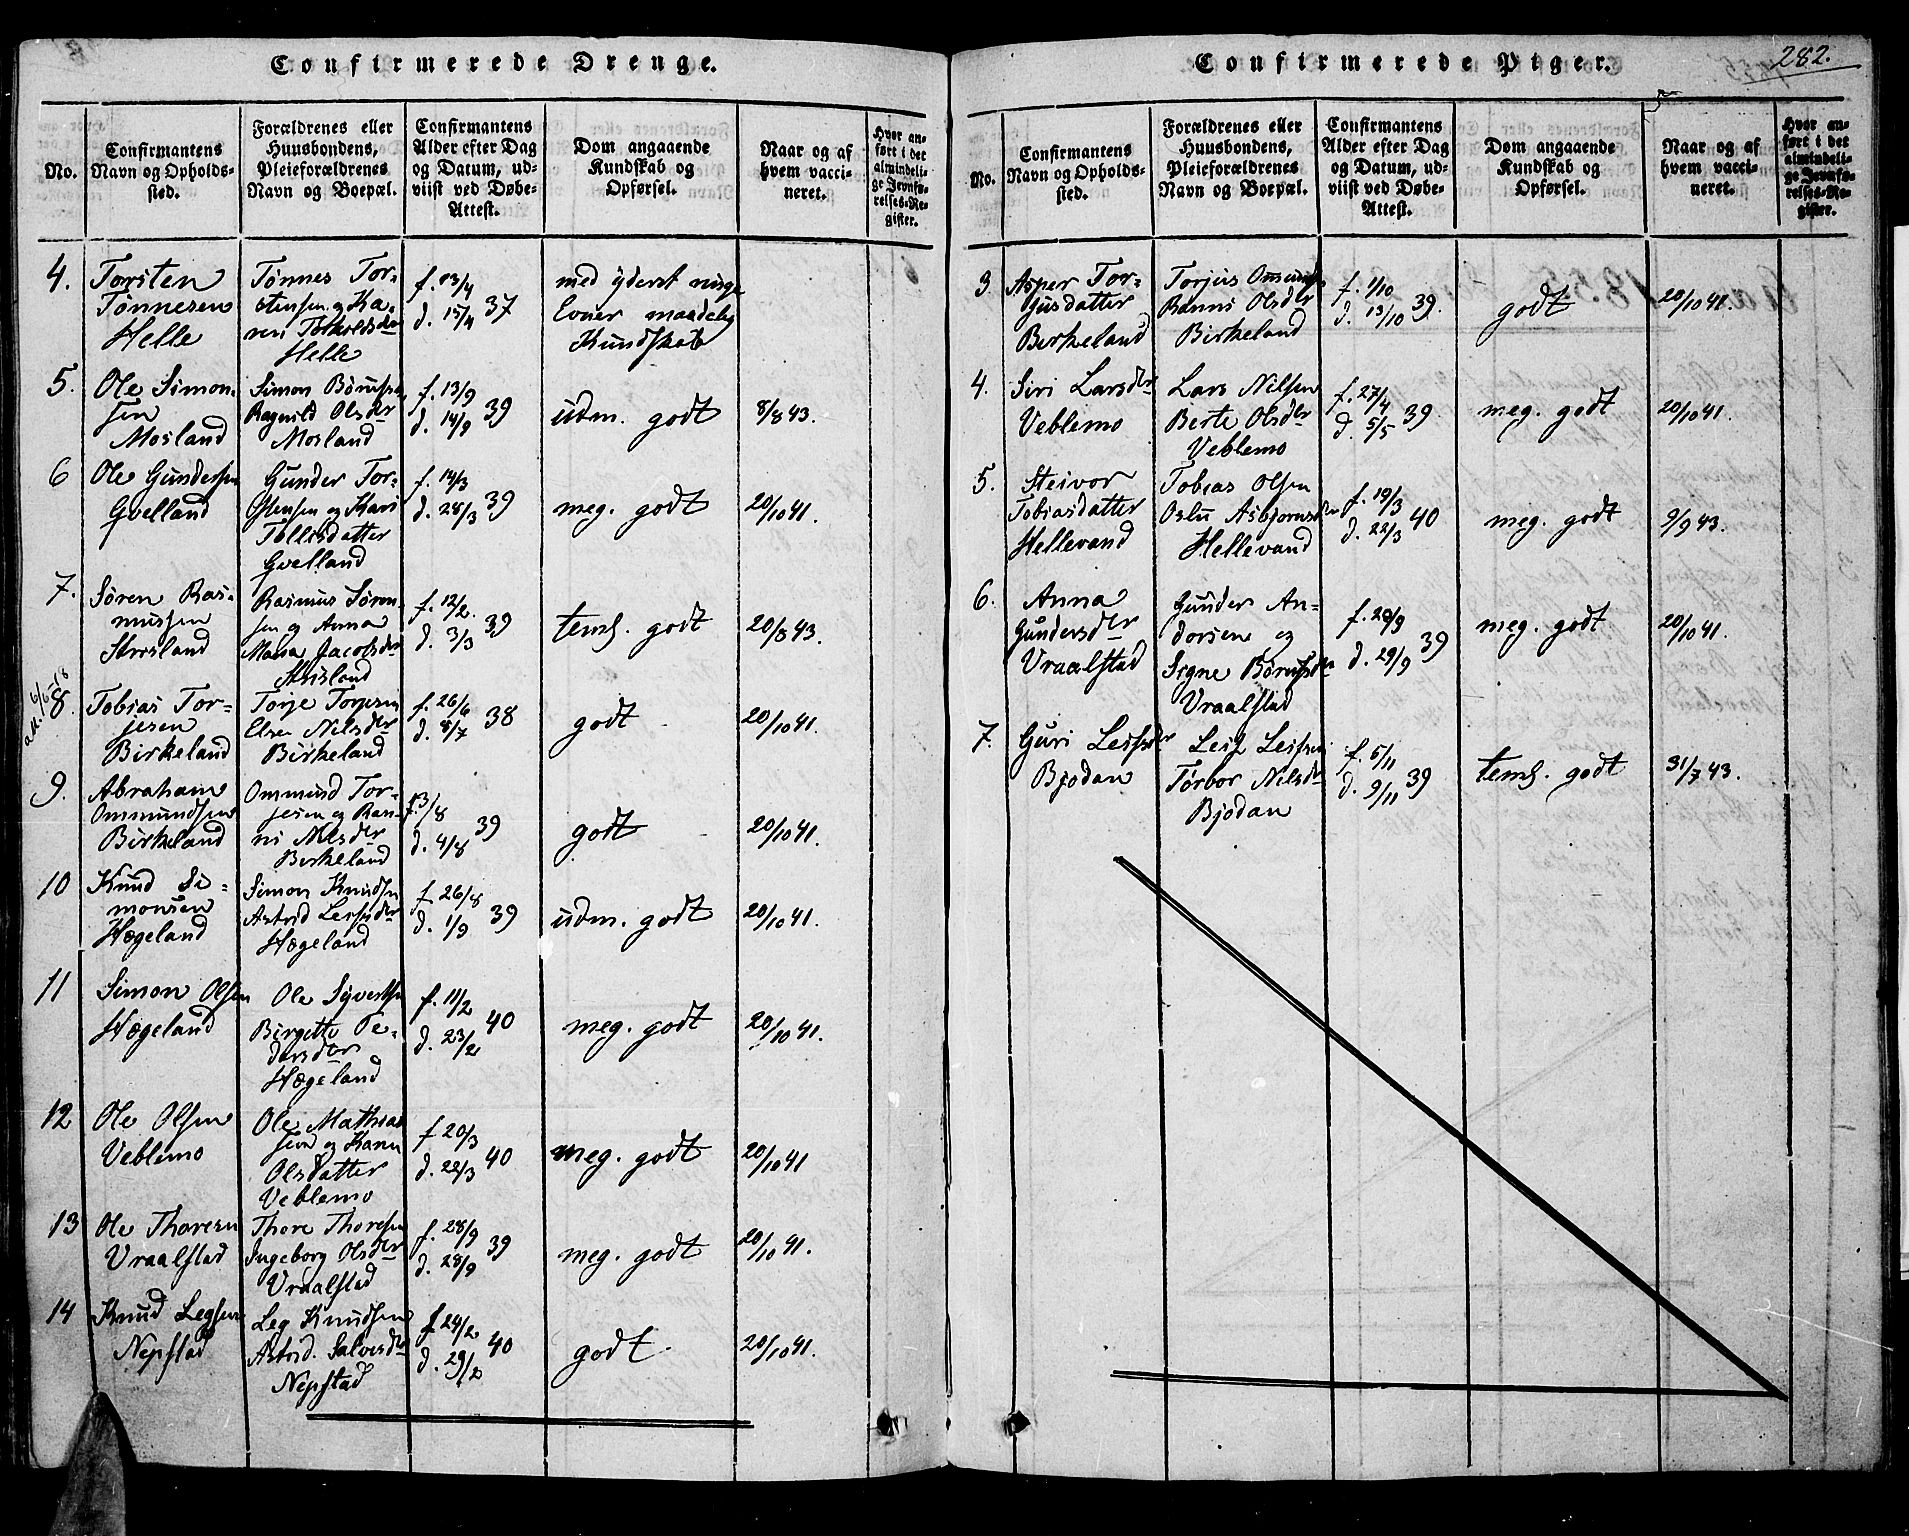 Confirmerede Drenge.
No.
Confirmantens
Navn og Opholds-
sted.
Forældrenes eller
Huusbondens,
Pleieforældrenes
Navn og Boepæl.
Confirmantens
Alder efter Dag
og Datum, ud-
viist ved Døbe-
Attest.
Dom angaaende
Kundskab og
Opførsel.
Naar og af
hvem vacci-
neret.
Hvor an-
ført i det
almindeli-
ge Jevnfø-
relses-Re-
gister.
4.
Torsten
Tønnesen
Helle
Tønnes Tor-
stensen og Ka-
ren
Helle
f. 13/4
d. 15/4 37
med yderst ringe
Evner maadelig
Kundskab
5.
Ole Simon-
sen
Mosland
Simon Børufsen
Ragnild Olsder
Mosland
f. 13/9
d. 14/9 39
udm. godt
8/8 43.
6
Ole Gundersen
Gvelland
Gunder Tor-
stensen og Kari
Tellefsdatter
Gvelland
f. 14/3
d. 28/3 39
meg. godt
20/10 41.
7.
Søren Ras-
mussen
Strisland
Rasmus Søren-
sen og Anna
Maria Jacobsder
Strisland
f. 12/2.
d. 3/3 39
teml. godt
20/8 43.
8.
Tobias Tor-
jesen
Birkeland
Torje Torjesen
Elsen Nilsder
Birkeland
f. 26/6
d. 8/7 38
godt
20/10 41.
9.
Abraham
Ommundsen
Birkeland
Ommund Tor-
jesen og Ran-
ni Nilsder
Birkeland
f. 3/8
d. 4/8 39
godt
20/10 41.
10
Knud Si-
monsen
Hægeland
Simon Knudsen
Astrid Leifsder
Hægeland
f 26/8
d. 1/9 39
udm. godt
20/10 41.
11
Simon Olsen
Hægeland
Ole Syvertsen
Birgitte Pe-
dersder
Hægeland
f. 11/2
d. 23/2 40
meg. godt
20/10 41.
12
Ole Olsen
Veblemo
Ole Mathias
sen og Karen
Olsdatter
Veblemo
f 20/3
d. 22/3 40
meg. godt
20/10 41
13
Ole Thoresen
Vraalstad
Thore Thoresen
Ingeborg Olsder
Vraalstad
f. 28/9
d. 28/9 39
meg. godt
20/10 41.
14
Knud Legsen
Nepstad
Leg Knudsen
Astrid. Salvesder
Nepstad
f 24/2
d. 29/2 40
godt
20/10 41.
282.
Confirmerede Piger.
No.
Confirmantens
Navn og Opholds-
sted.
Forældrenes eller
Huusbondens,
Pleieforældrenes
Navn og Boepæl.
Confirmantens
Alder efter Dag
og Datum, ud-
viist ved Døbe-
Attest.
Dom angaaende
Kundskab og
Opførsel.
Naar og af
hvem vacci-
neret.
Hvor an-
ført i det
almindeli-
ge Jevnfø-
relses-Re-
gister.
3
Asper Tor-
jusdatter
Birkeland
Torjus
Ranni Olsder
Birkeland
f. 1/10
d. 13/10 39.
godt
20/10 41.
4.
Siri Larsder
Veblemo
Lars Nilsen
Berte Olsder
Veblemo
f. 27/4
d. 5/5 39
meg. godt
20/10 41.
5.
Steivor
Tobiasdatter
Hellevand
Tobias Olsen
Oslu Asbjornsder
Hellevand
f. 19/3
d. 22/3 40
meg. godt
9/9 43.
6.
Anna
Gundersder
Vraalstad
Gunder An-
dersen og
Signe Børufsder
Vraalstad
f. 20/9
d. 29/9 39
meg. godt
20/10 41.
7.
Guri Leifsder
Bjodan
Leif Leifsen
Torbor Nilsder
Bjodan
f. 5/11
d. 9/11 39
teml. godt
31/7 43.